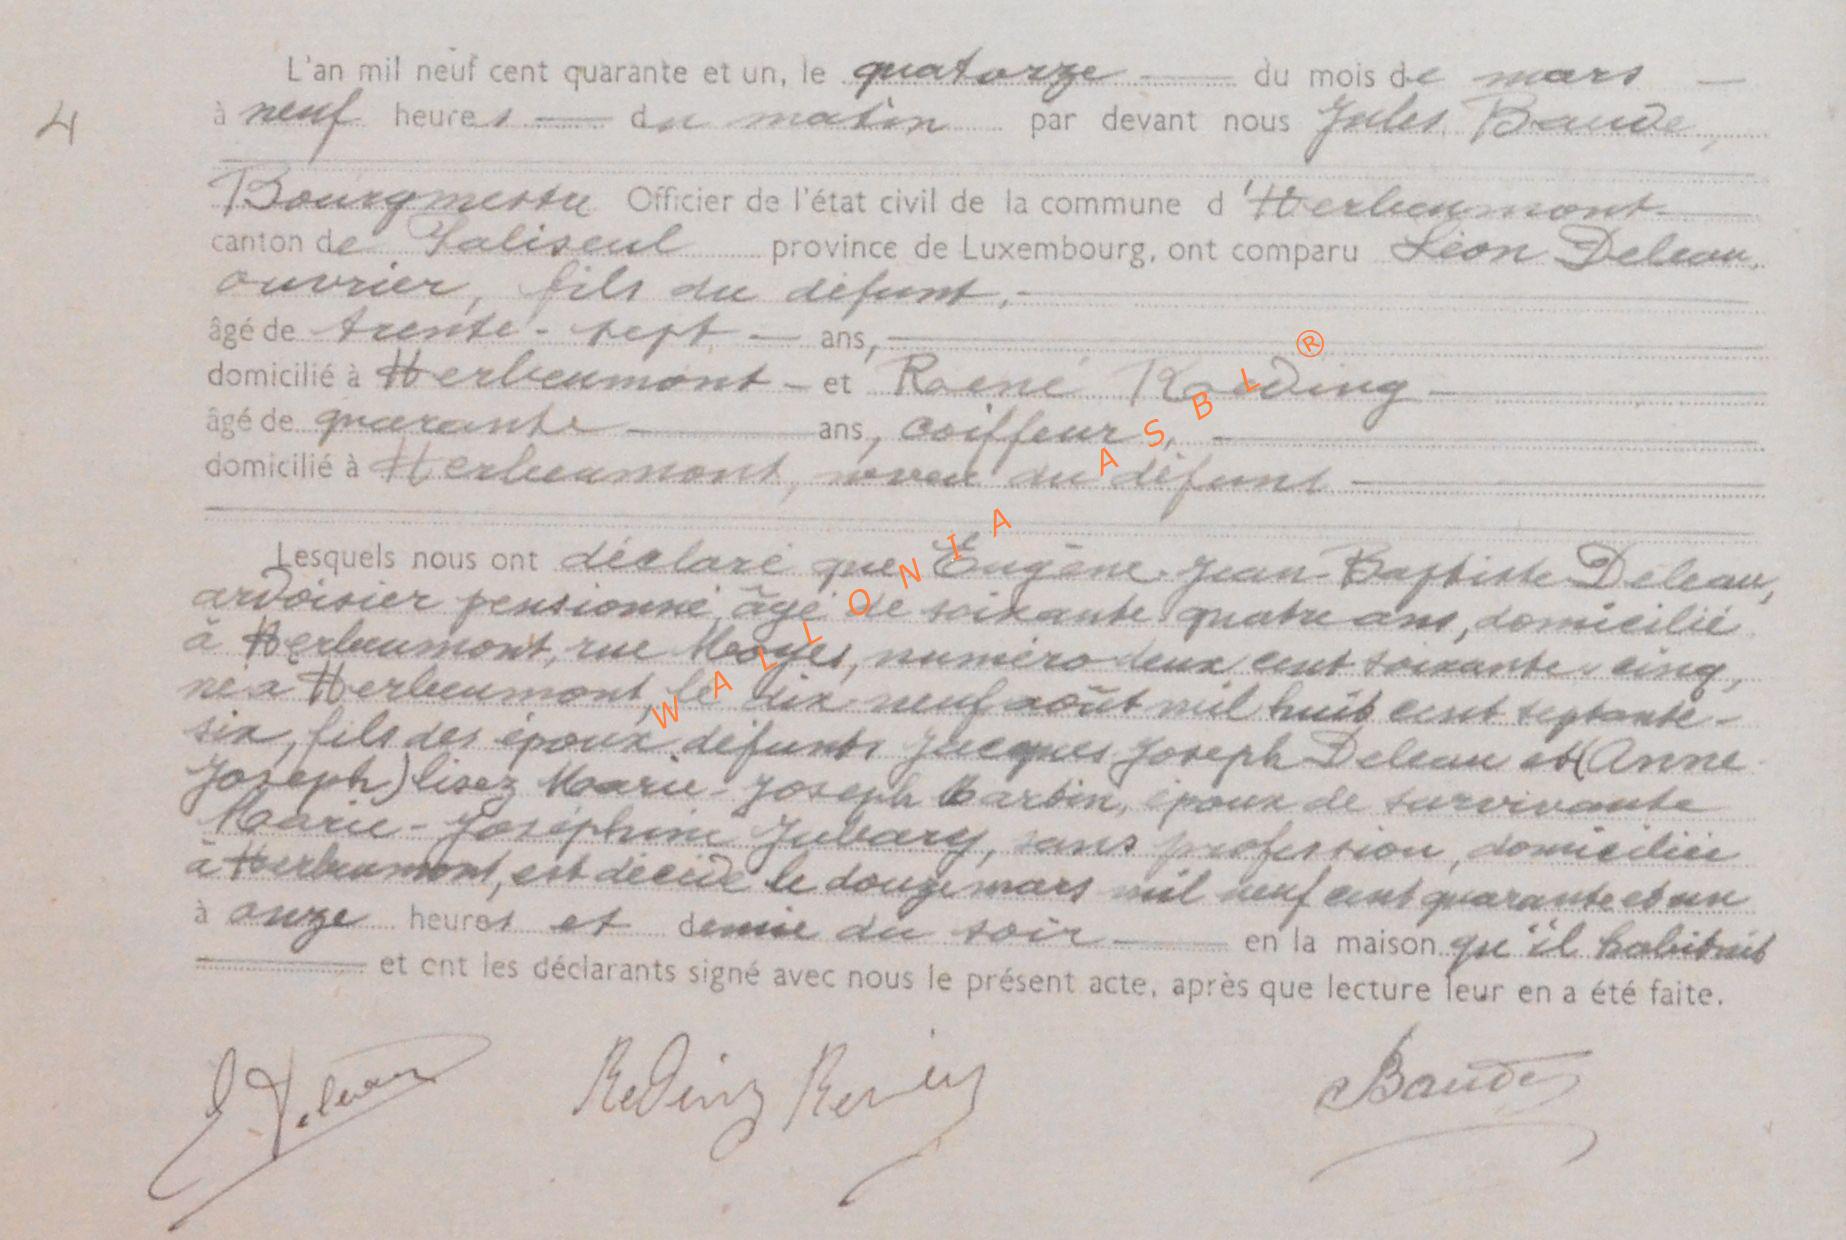 L'an mil neuf cent quarante et un, le quatorze du mois de mars
4 à neuf heures du matin par devant nous Jules Baude,
Bourgmestre Officier de l'état civil de la commune d'Herbeumont
canton de Paliseul province de Luxembourg, ont comparu Léon Deleau,
ouvrier, fils du défunt,
âgé de trente-sept ans,
domicilié à Herbeumont et René Reding
âgé de quarante ans, coiffeur,
domicilié à Herbeumont, neveu du défunt
Lesquels nous ont déclaré que Eugène-Jean-Baptiste Deleau,
ardoisier pensionné, âgé de soixante quatre ans, domicilié
à Herbeumont, rue numéro deux cent soixante-cinq,
né à Herbeumont, le dix-neuf août mil huit cent septante-
six, fils des époux défunts Jacques Joseph Deleau et (Anne
Joseph) lisez Marie-Joseph Barbin, époux de survivante
Marie-Joséphine Jubary, sans profession, domiciliée
à Herbeumont, est décédé le douze mars mil neuf cent quarante et un
à onze heures et demie du soir en la maison qu'il habitait
et ont les déclarants signé avec nous le présent acte, après que lecture leur en a été faite.
Deleau Reding René Baude
WALLONIA ASBL ®